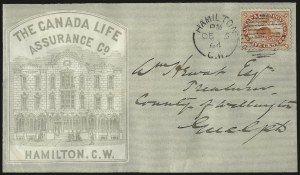 THE CANADA LIFE
ASSURANCE Co
HAMILTON. C.W.
HAMILTON
PM
DE 5
64
C.W.
Wm Hewat Esqr
Treasurer
County of Wellington
Guelph